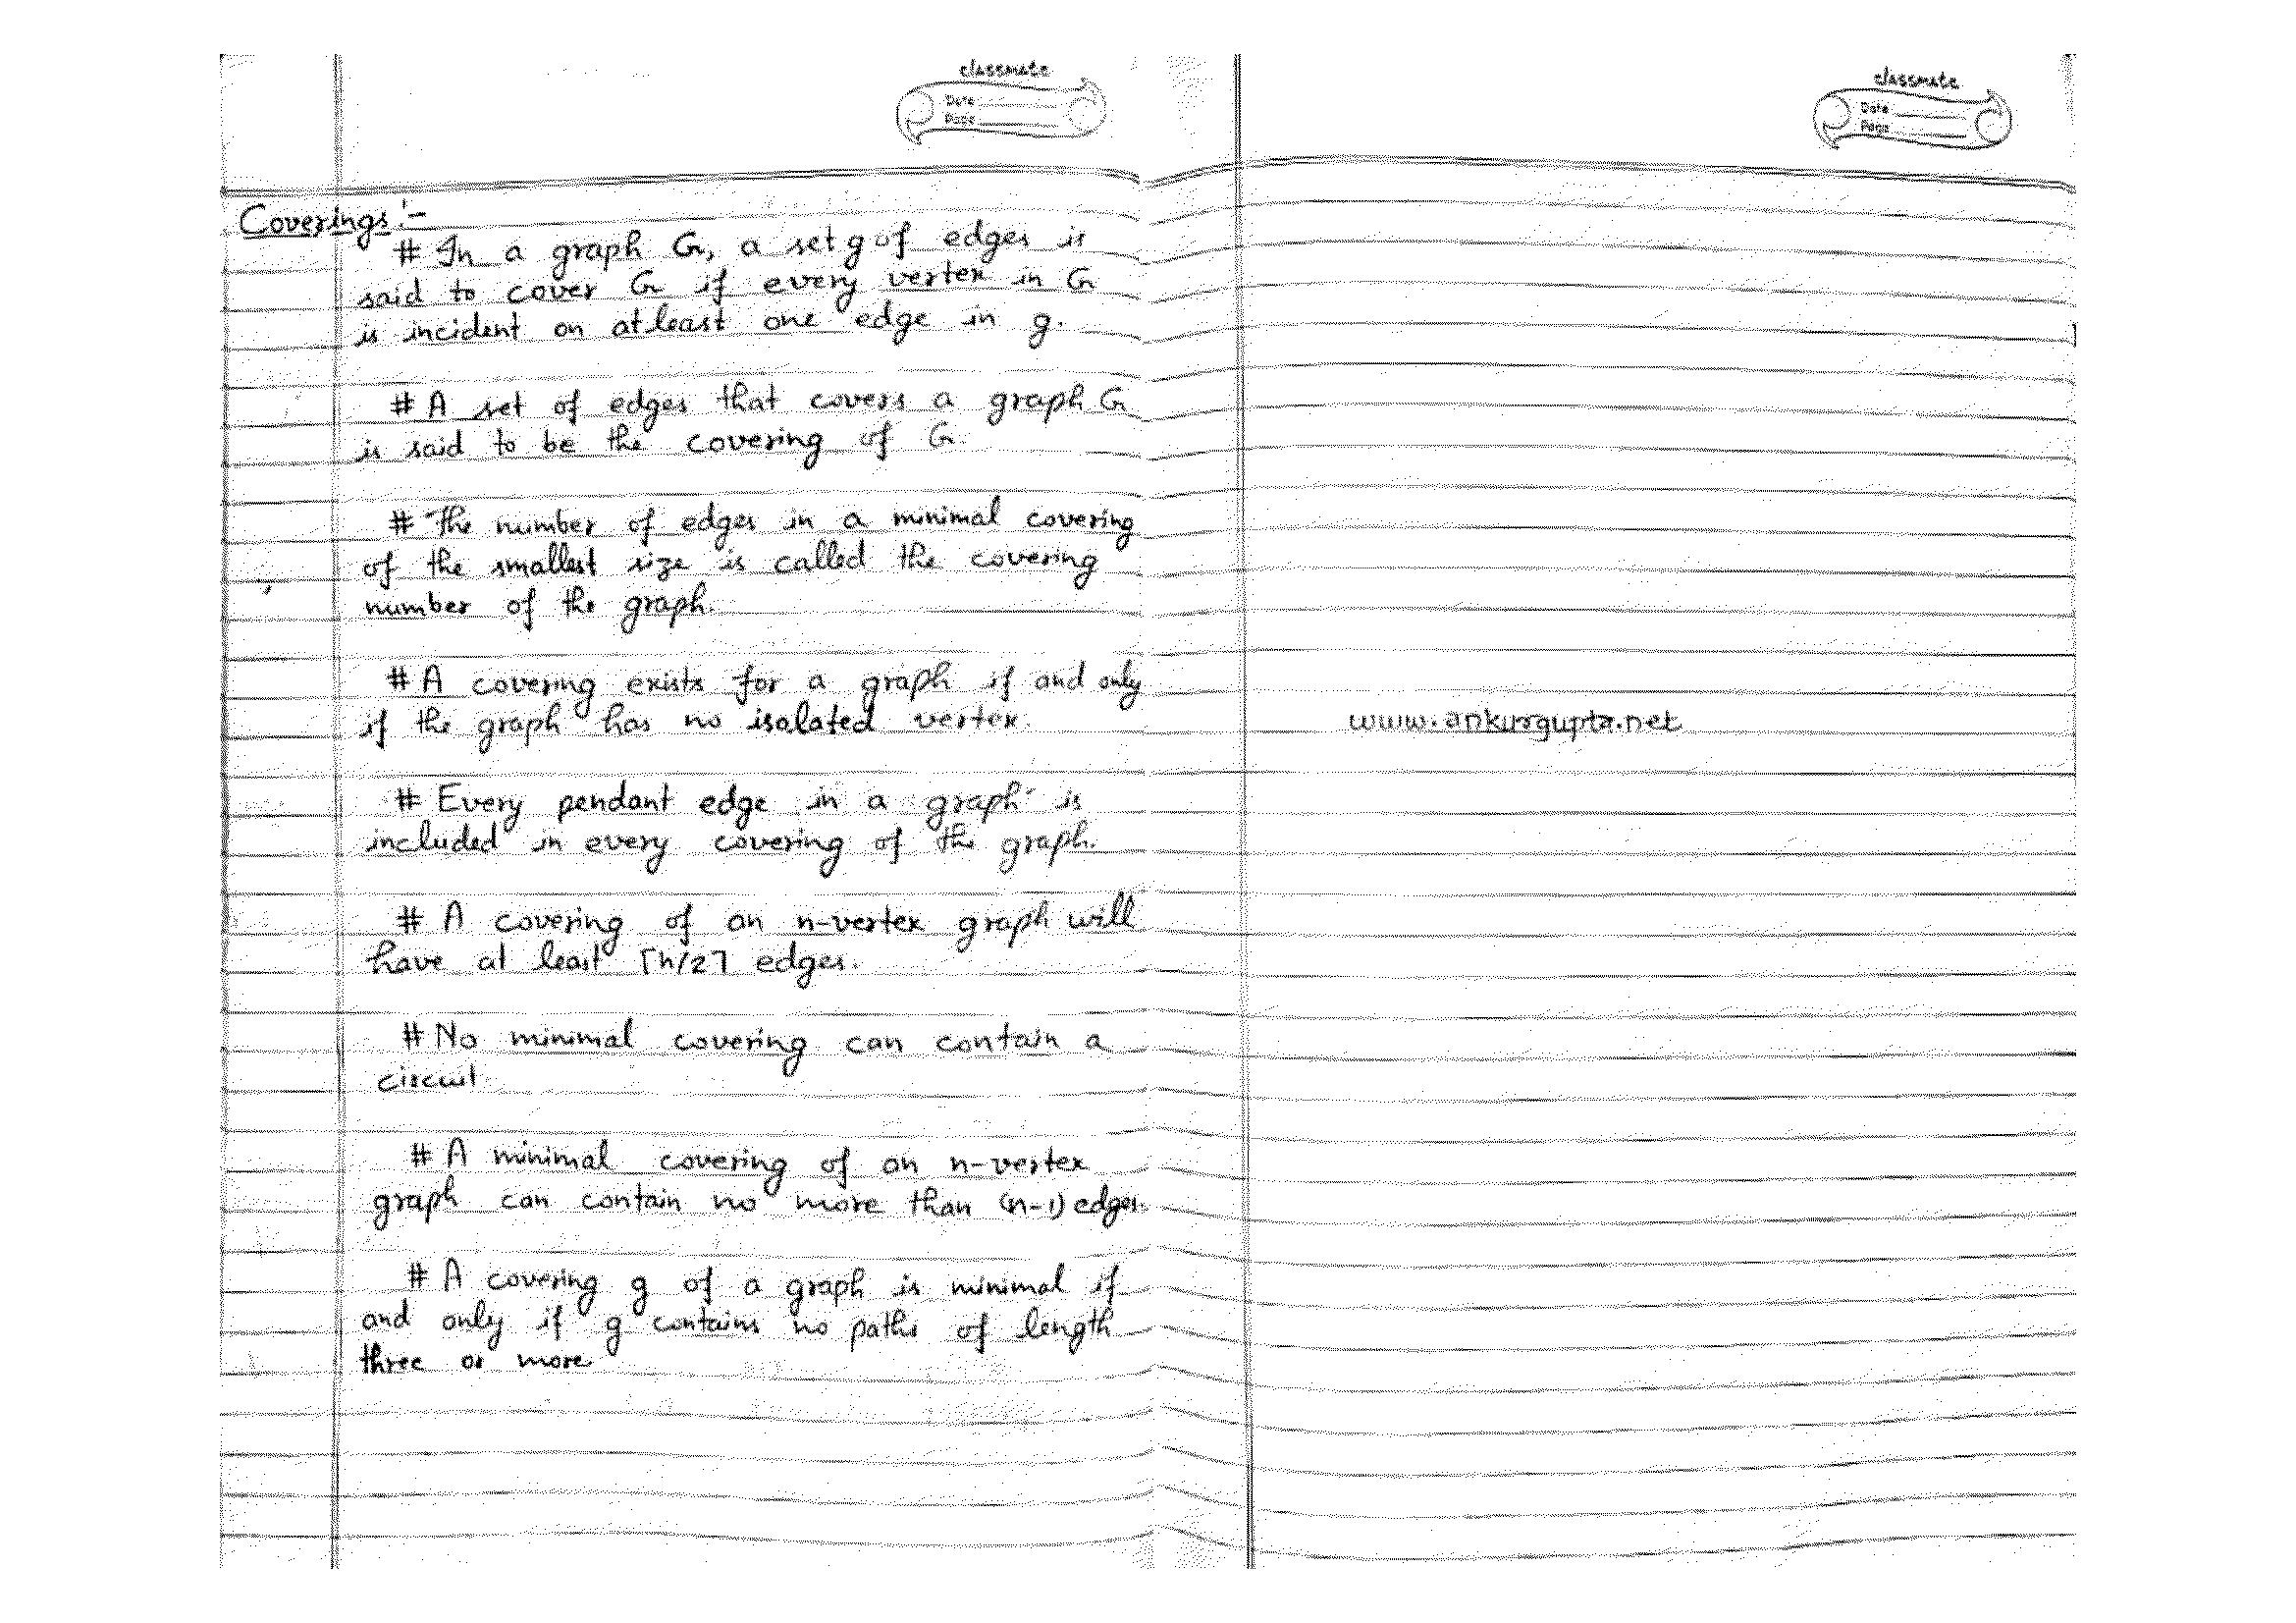 classmate
Date
Page
Coverings :-
# In a graph G, a set g of edges is
said to cover G if every vertex in G
is incident on atleast one edge in g.
# A set of edges that covers a graph G
is said to be the covering of G.
# The number of edges in a minimal covering
of the smallest size is called the covering
number of the graph.
# A covering exists for a graph if and only
if the graph has no isolated vertex.
# Every pendant edge in a graph is
included in every covering of the graph.
# A covering of an n-vertex graph will
have at least ⌈n/2⌉ edges.
# No minimal covering can contain a
circuit
# A minimal covering of an n-vertex
graph can contain no more than (n-1) edges.
# A covering g of a graph is minimal if
and only if g contains no paths of length
three or more
classmate
Date
Page
www.ankurgupta.net